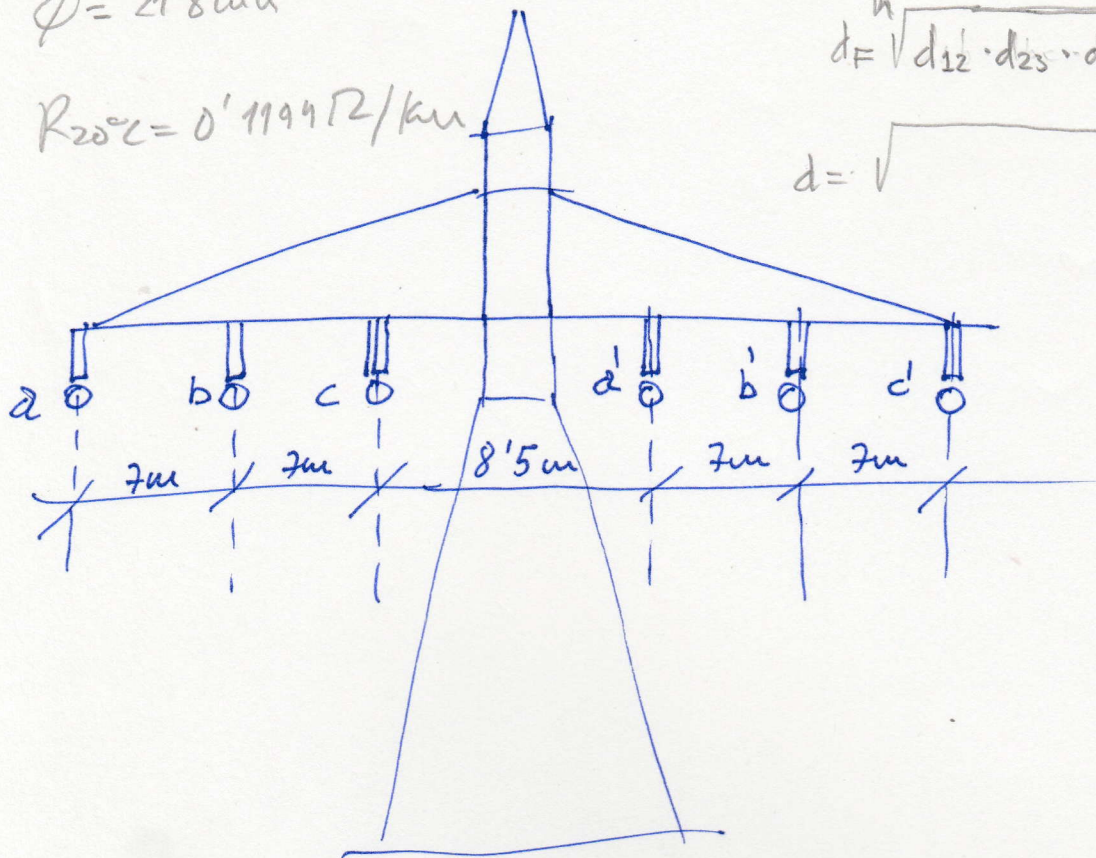 φ= 21'8mm
R20°C= 0'1194 Ω/km
n
dF √ d12 · d23 · d
d= √
a b c a' b' c'
7m 7m 8'5m 7m 7m